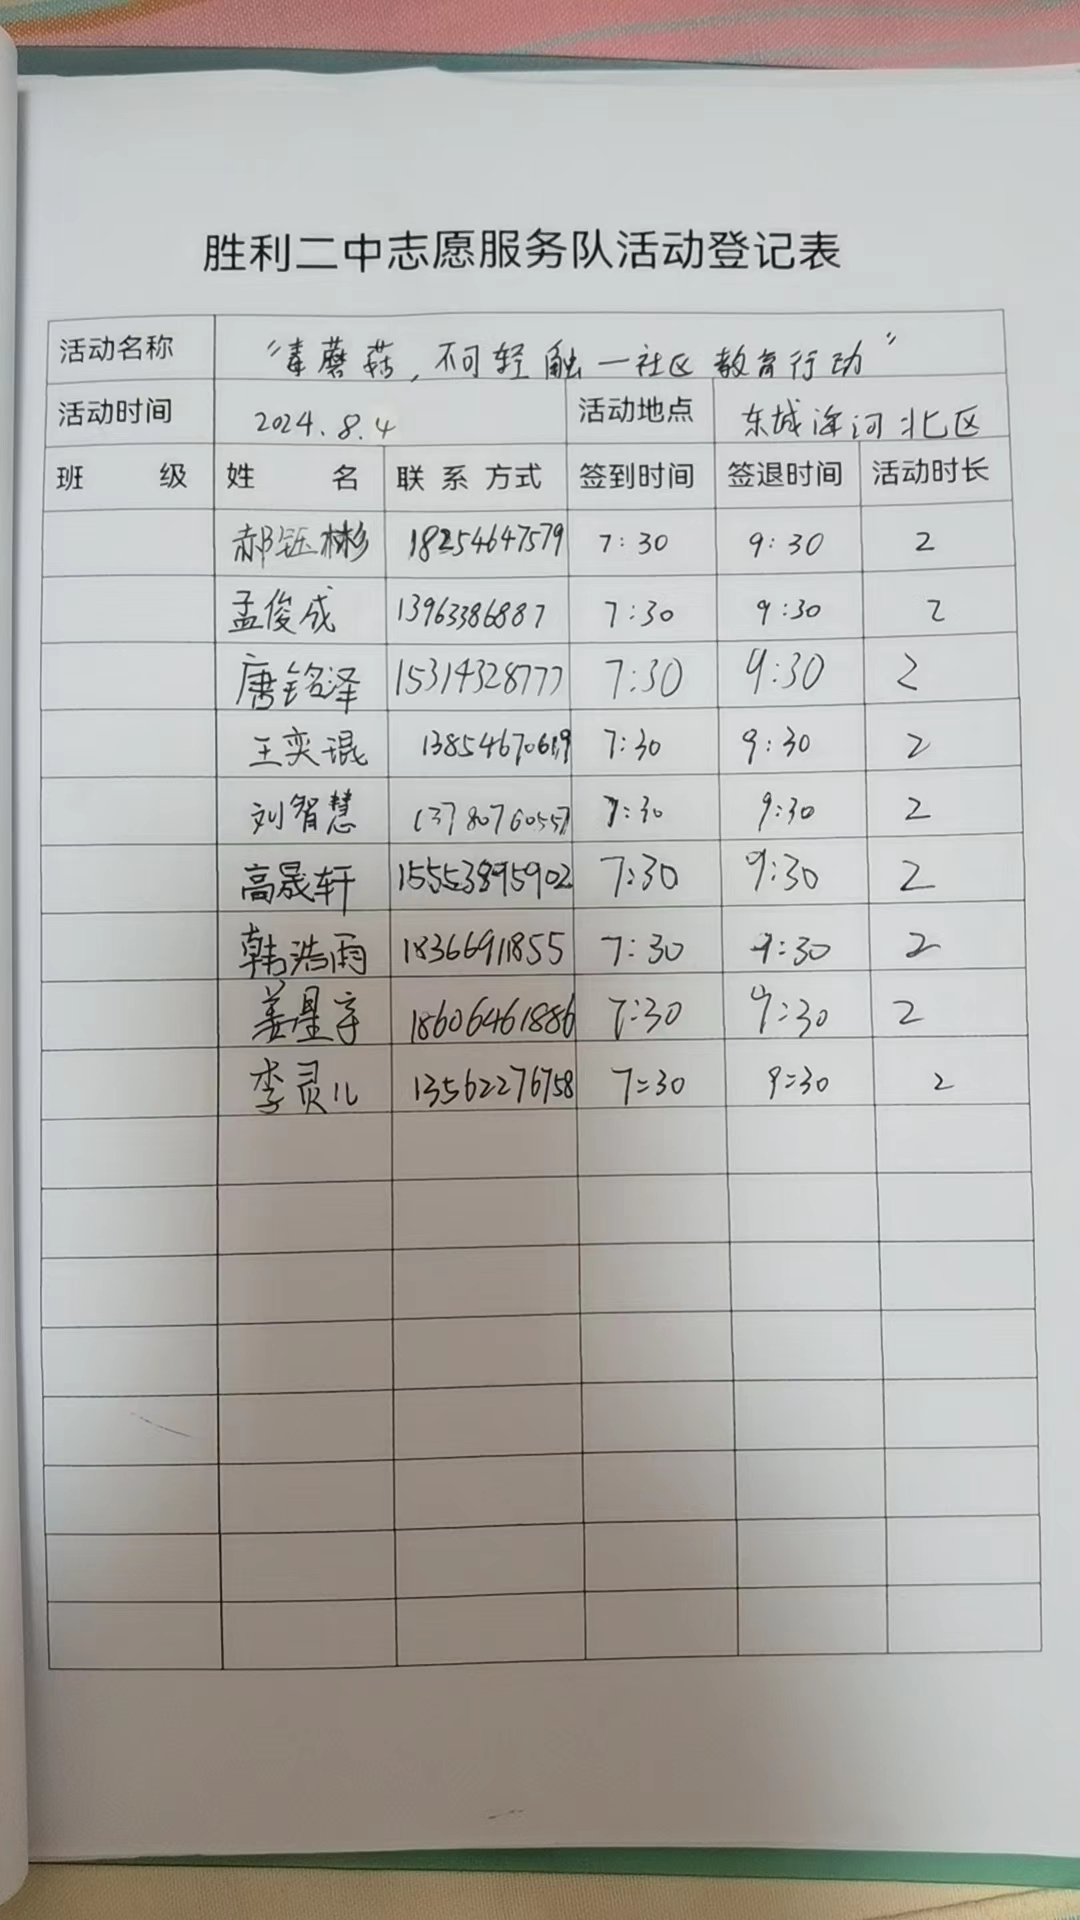 胜利二中志愿服务队活动登记表
活动名称 “毒蘑菇,不可轻触一社区教育行动”
活动时间 2024.8.4 活动地点 东城淮河北区
班 级 姓 名 联系方式 签到时间 签退时间 活动时长
郝钰彬 18254647579 7:30 9:30 2
孟俊成 13963386887 7:30 9:30 2
唐铭泽 15314328777 7:30 9:30 2
王奕琨 13854670619 7:30 9:30 2
刘智慧 13780760557 7:30 9:30 2
高晟轩 15553895902 7:30 9:30 2
韩浩雨 18366911855 7:30 9:30 2
姜星宇 18606461886 7:30 9:30 2
李灵儿 13562276758 7:30 9:30 2